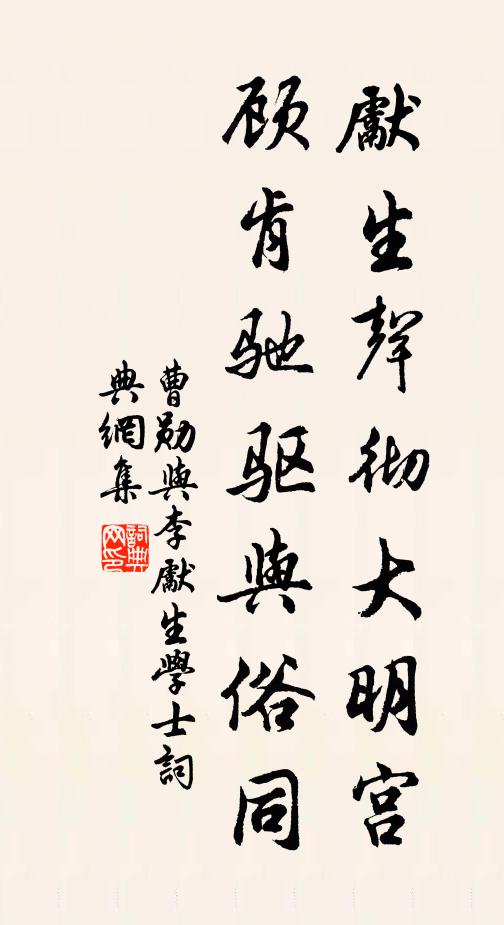 獻生聲彻大明宫
顾肯驰驱與俗同
曹勛與李獻生學士詞
典網集
詞典
网印